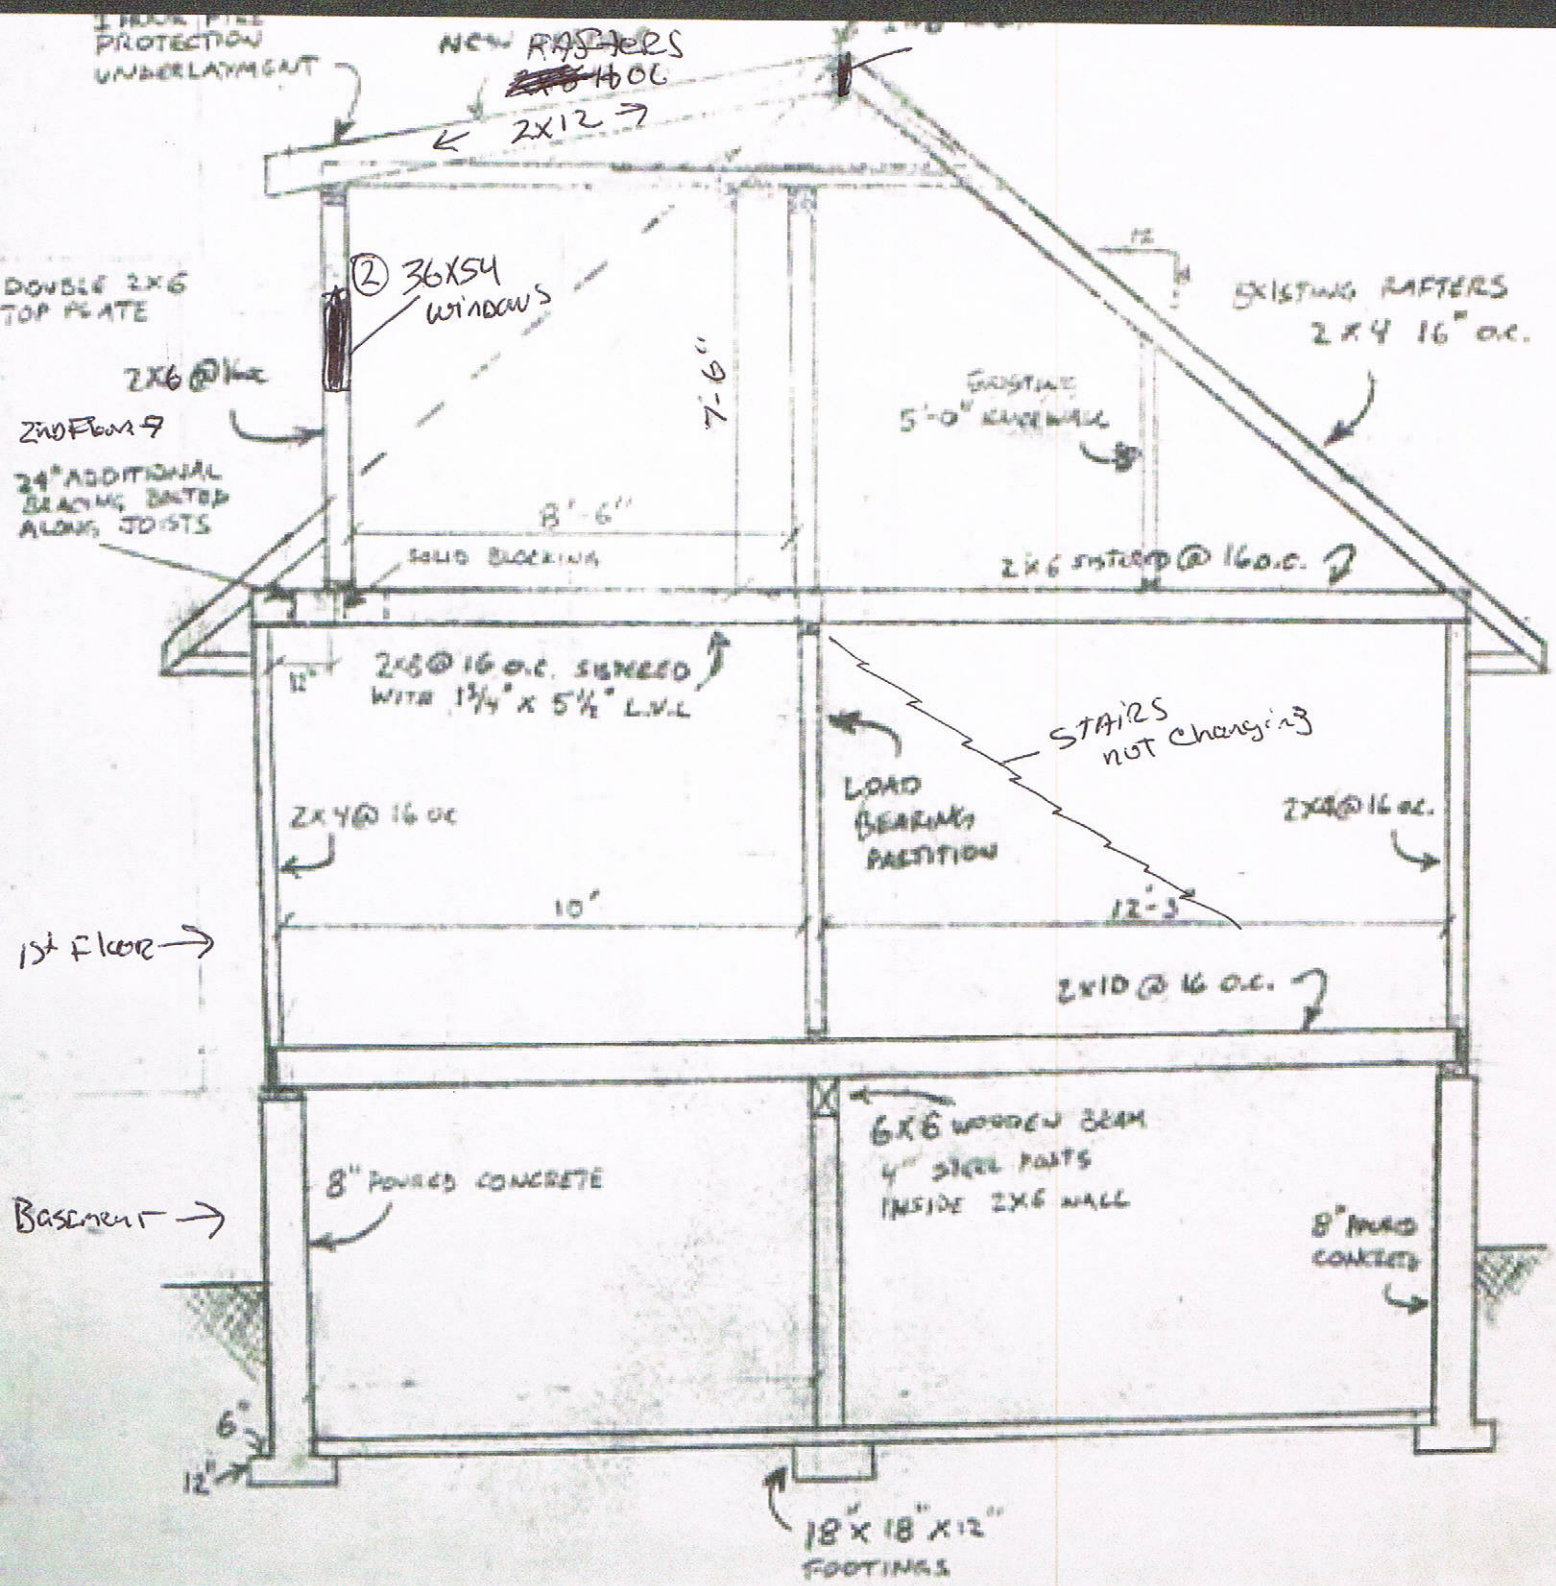 PROTECTION
UNDERLAYMENT
NEW RAFTERS
16 OC
2X12
DOUBLE 2X6
TOP PLATE
2X6 @ 16oc
2nd Floor
24" ADDITIONAL
BRACING BOLTED
ALONG JOISTS
② 36X54
windows
7'-6"
12
EXISTING RAFTERS
2 X 4 16" o.c.
EXISTING
5'-0" KNEEWALL
8'-6"
SOLID BLOCKING
2x6 SISTERED @ 16 o.c.
12"
2x8 @ 16 o.c. SISTERED
WITH 1 3/4" X 5 1/2" L.V.L
STAIRS
not Changing
LOAD
BEARING
PARTITION
2x4@ 16 oc
@ 16 o.c.
10'
12'-3"
1st Floor
2x10 @ 16 o.c.
6X6 WOODEN BEAM
4" STEEL POSTS
INSIDE 2X6 WALL
8" POURED CONCRETE
Basement
8" POURED
CONCRETE
6"
12"
18" X 18" X 12"
FOOTINGS